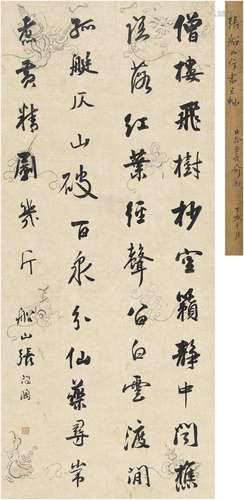 張船山行書立軸
僧樓飛樹杪空籟靜中聞樵
語落紅葉經聲留白雲渡澗
孤艇仄山破百泉分仙藥尋常
煮黃精劚幾斤 船山張問陶